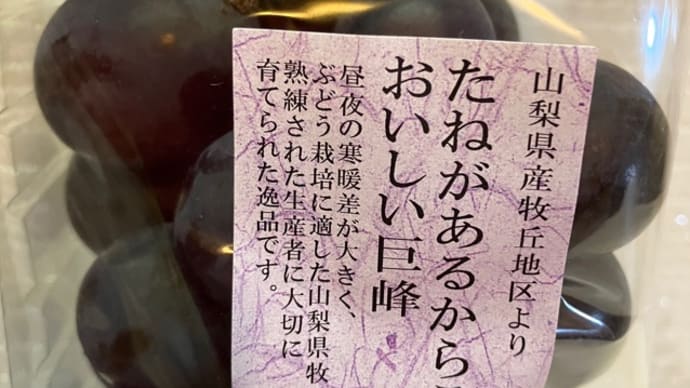 山梨県産牧丘地区より
たねがあるから
おいしい巨峰
昼夜の寒暖差が大きく、
ぶどう栽培に適した山梨県牧
熟練された生産者に大切に
育てられた逸品です。